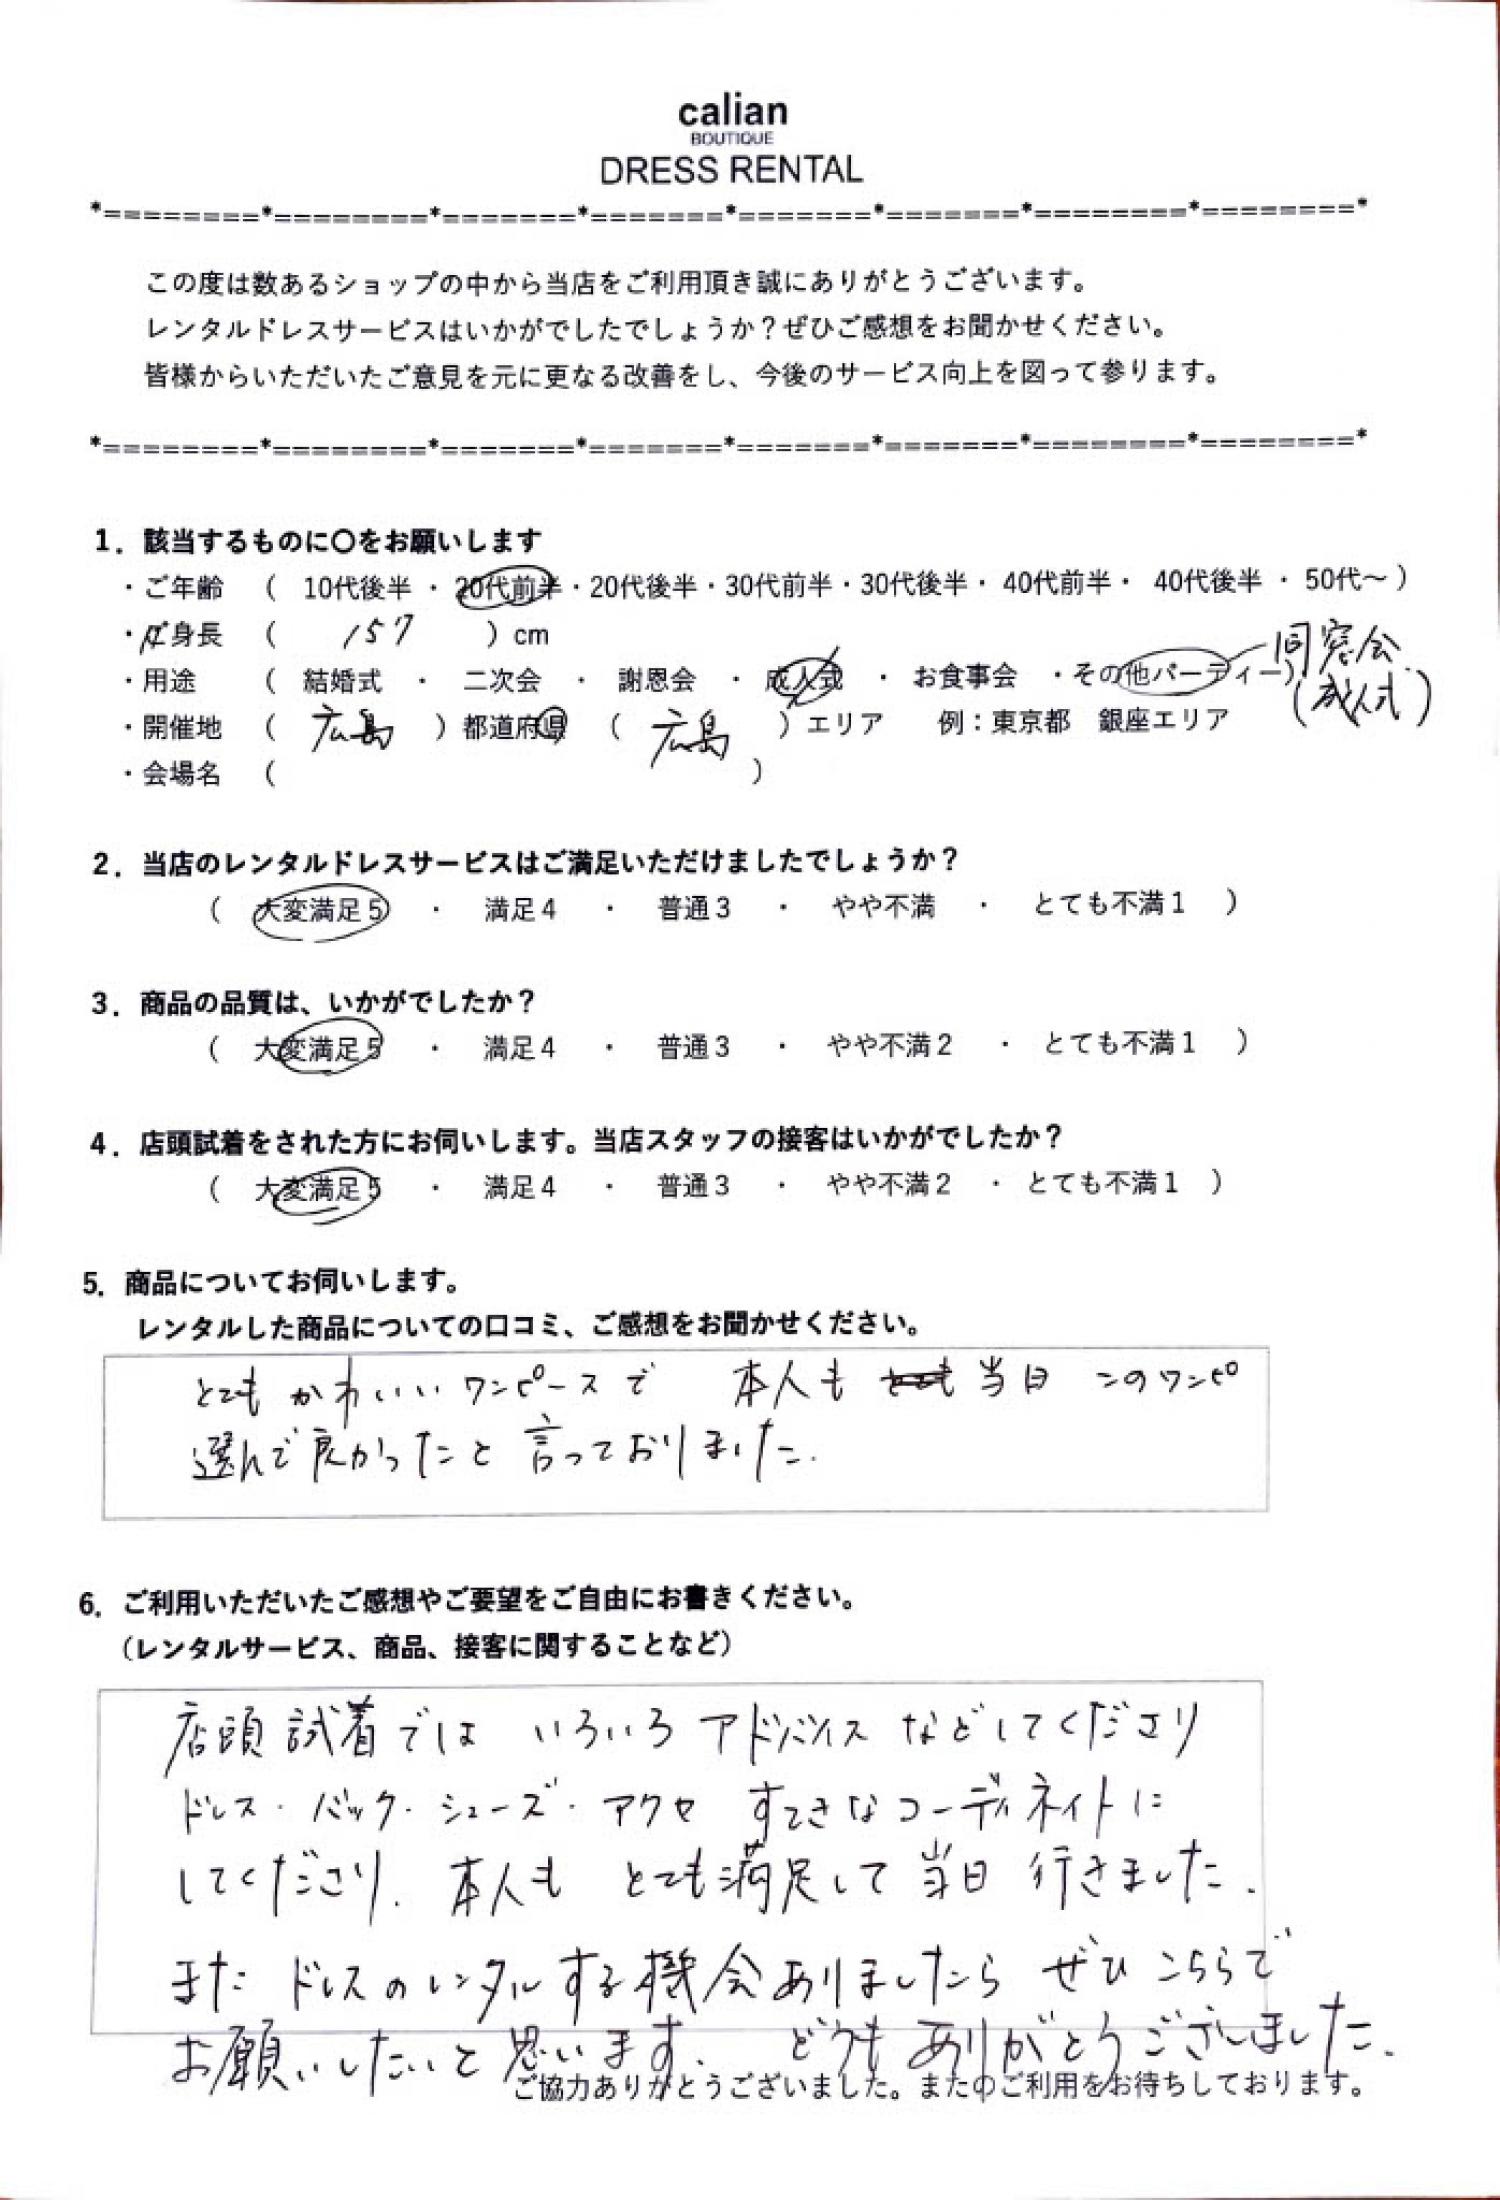 calian
BOUTIQUE
DRESS RENTAL
*========*========*=======*=======*=======*=======*========*========*
この度は数あるショップの中から当店をご利用頂き誠にありがとうございます。
レンタルドレスサービスはいかがでしたでしょうか？ぜひご感想をお聞かせください。
皆様からいただいたご意見を元に更なる改善をし、今後のサービス向上を図って参ります。
*========*========*=======*=======*=======*=======*========*========*
1．該当するものに〇をお願いします
・ご年齢 （ 10代後半 ・ 20代前半・20代後半・30代前半・30代後半・ 40代前半・ 40代後半 ・ 50代～ ）
・身長 （ 157 ）cm
・用途 （ 結婚式 ・ 二次会 ・ 謝恩会 ・ 成人式 ・ お食事会 ・その他パーティー） 同窓会
（成人式）
・開催地 （ 広島 ）都道府県 （ 広島 ）エリア 例：東京都 銀座エリア
・会場名 （ ）
2．当店のレンタルドレスサービスはご満足いただけましたでしょうか？
（ 大変満足５ ・ 満足４ ・ 普通３ ・ やや不満 ・ とても不満１ ）
3．商品の品質は、いかがでしたか？
（ 大変満足５ ・ 満足４ ・ 普通３ ・ やや不満２ ・ とても不満１ ）
4．店頭試着をされた方にお伺いします。当店スタッフの接客はいかがでしたか？
（ 大変満足５ ・ 満足４ ・ 普通３ ・ やや不満２ ・ とても不満１ ）
5．商品についてお伺いします。
レンタルした商品についての口コミ、ご感想をお聞かせください。
とてもかわいいワンピースで 本人も 当日 このワンピ
選んで良かったと言っておりました.
6．ご利用いただいたご感想やご要望をご自由にお書きください。
（レンタルサービス、商品、接客に関することなど）
店頭試着では いろいろ アドバイス などしてくださり
ドレス・バック・シューズ・アクセ すてきなコーディネイトに
してくださり. 本人も とても満足して当日 行きました.
また ドレスのレンタルする機会ありましたら ぜひ こちらで
お願いしたいと思います. どうもありがとうございました.
ご協力ありがとうございました。またのご利用をお待ちしております。